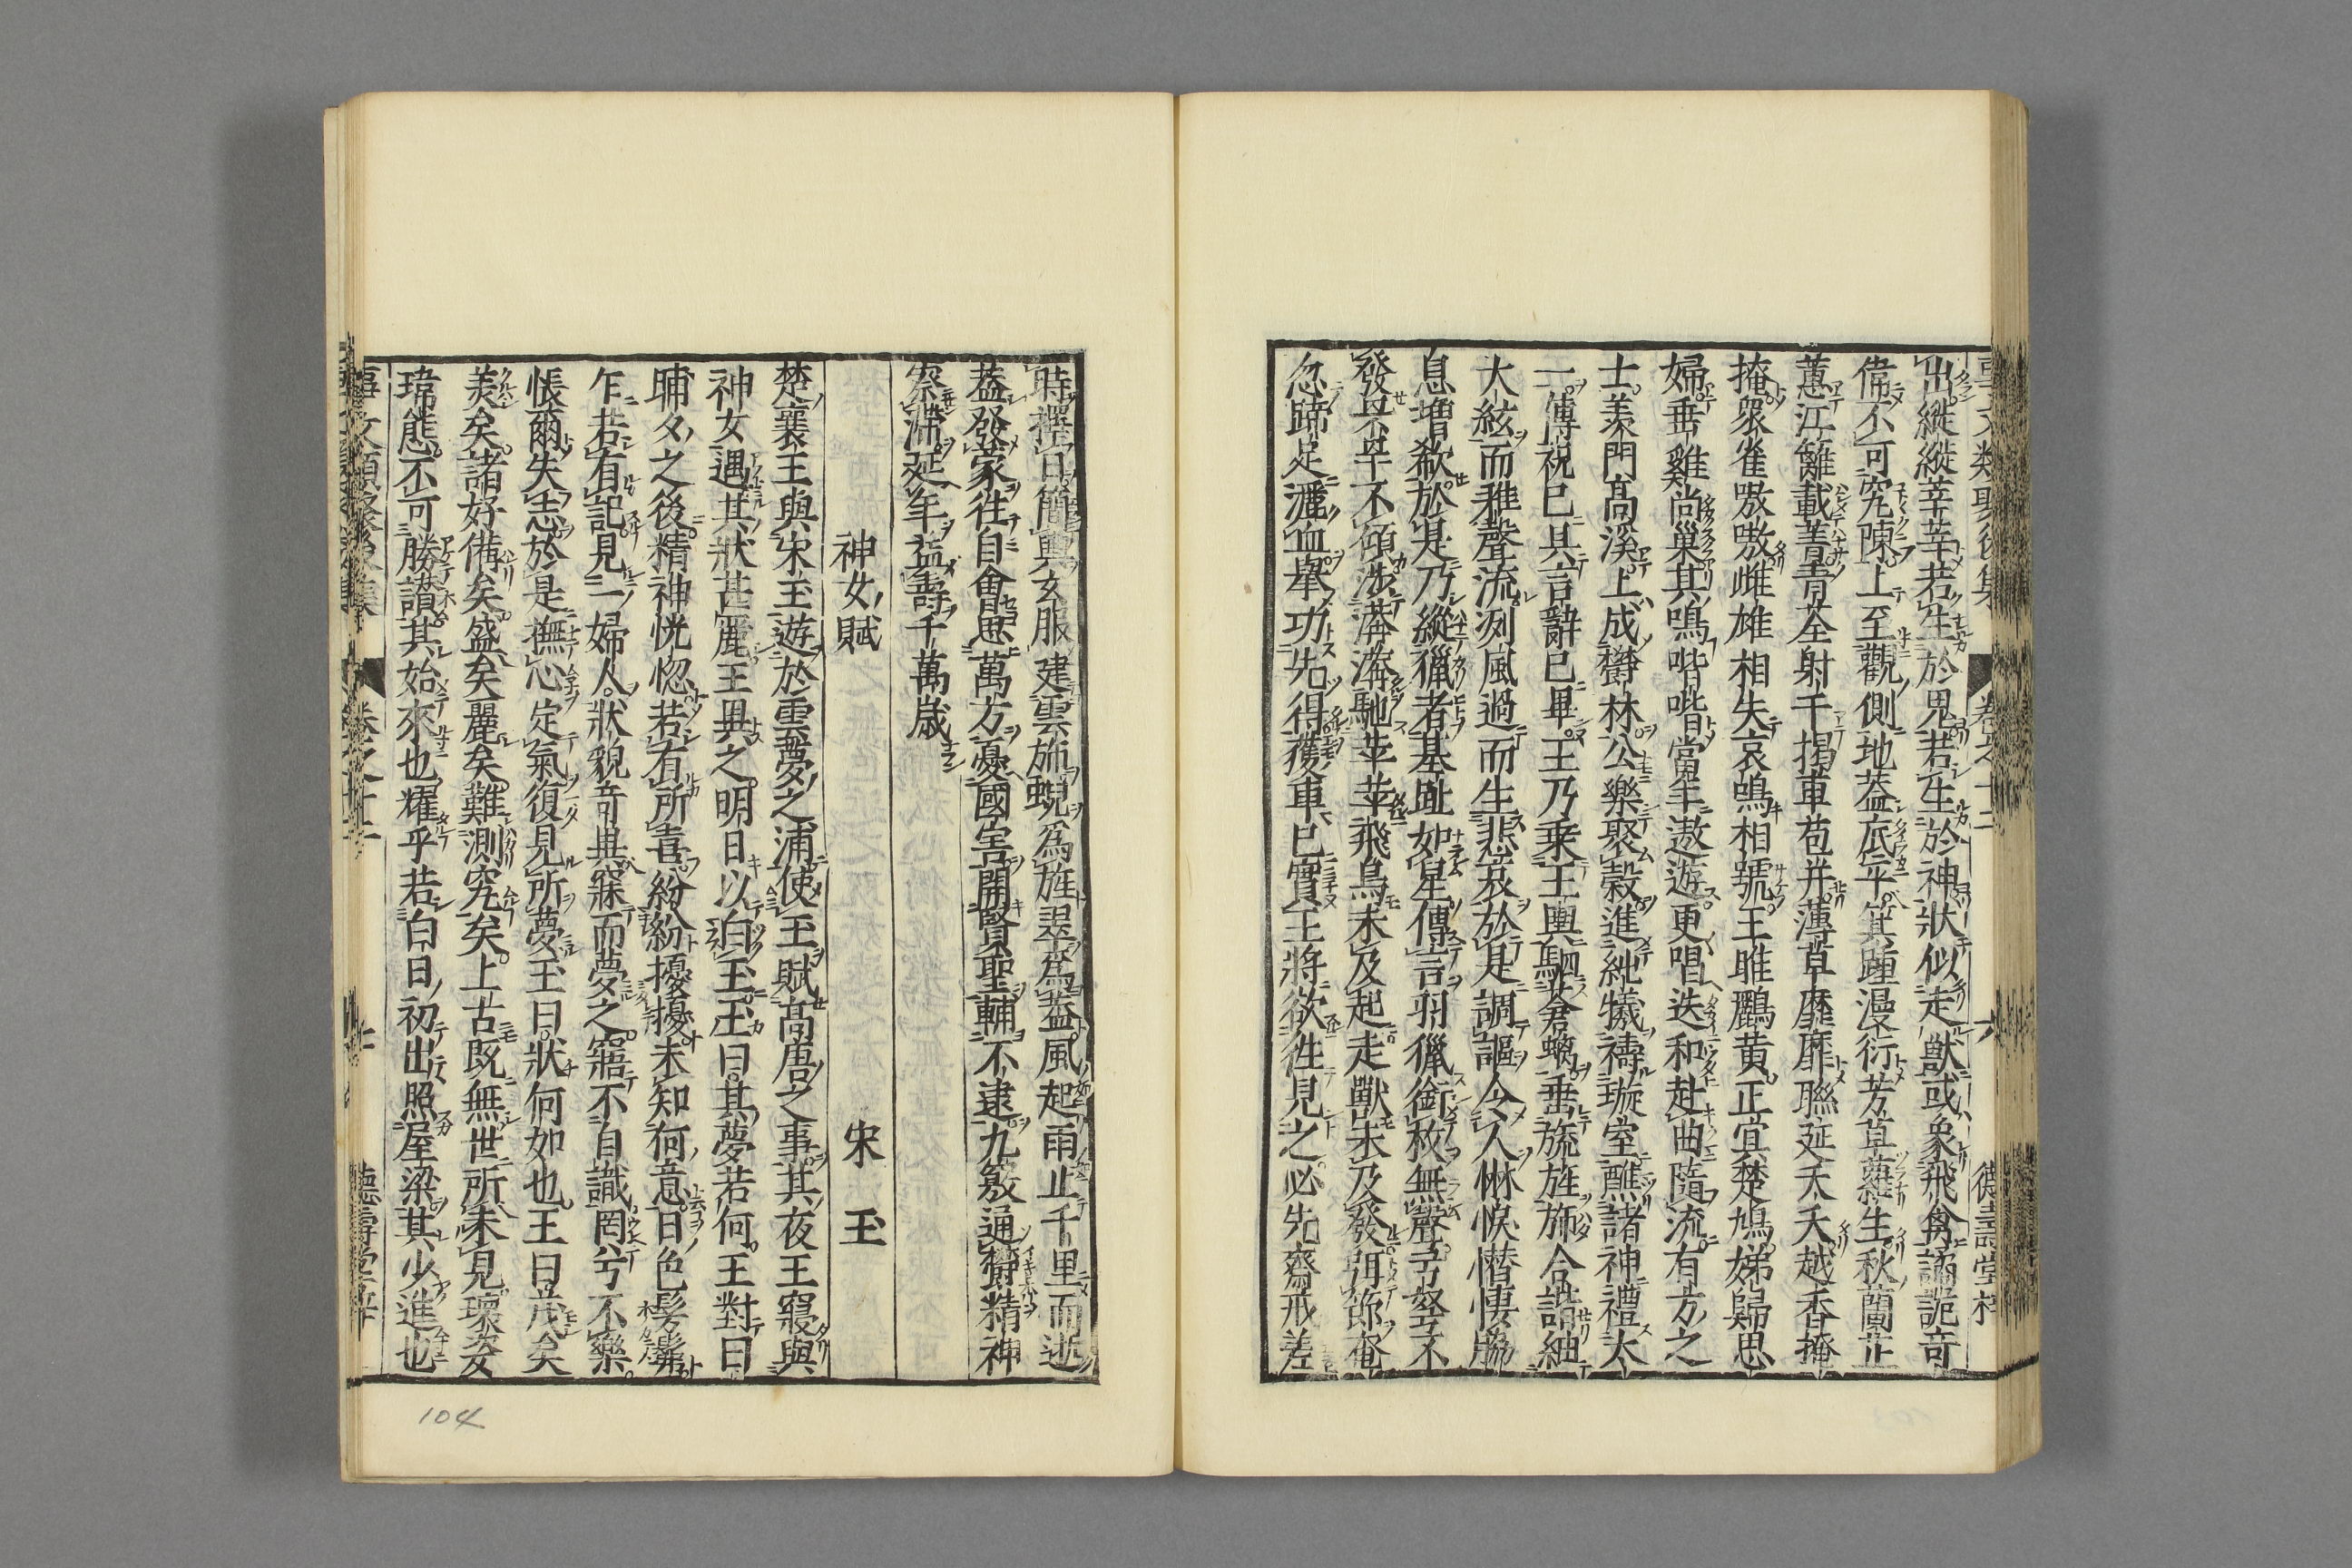 出縱縱莘莘若生於鬼若生於神狀似走獸或象飛禽譎詭奇
偉不可究陳上至觀側地蓋底平箕踵漫衍芳草羅生秋蘭芷
蕙江蘺載菁青荃射干揭車苞并薄草靡靡聯延夭夭越香掩
掩衆雀嗷嗷雌雄相失哀鳴相號王雎鸝黄正冥楚鳩姊歸思
婦垂雞高巢其鳴喈喈當年遨遊更唱迭和赴曲隨流有方之
士羨門高溪上成欝林公樂聚穀進純犧禱璇室醮諸神禮太
一傳祝已具言辭已畢王乃乗玉輿駟蒼螭垂旒旌斾合諧紬
大絃而雅聲流冽風過而生悲哀於是調謳令人惏悷憯悽脇
息増欷於是乃縱獵者基趾如星傳言羽獵銜枚無聲弓弩不
發罘䍐不傾渉漭漭馳苹苹飛鳥未及起走獸未及發弭節奄
忽蹄足灑血舉功先得獲車已實王將欲徃見之必先齋戒差
時擇日簡輿玄服建雲斾蜺為旌翠為蓋風起雨止千里而逝
蓋發蒙徃自會思萬方憂國害開賢聖輔不逮九竅通欝精神
察滯延年益壽千萬歳
神女賦　宋玉
楚襄王與宋玉遊於雲夢之浦使玉賦高唐之事其夜王寢與
神女遇其狀甚麗王異之明日以白玉玉曰其夢若何王對曰
晡夕之後精神恍惚若有所喜紛紛擾擾未知何意目色髣髴
乍若有記見一婦人狀貌奇異寐而夢之寤不自識罔兮不樂
悵爾失志於是撫心定氣復見所夢玉曰狀何如也王曰茂矣
美矣諸好備矣盛矣麗矣難測究矣上古既無世所未見瓌姿
瑋態不可勝讃其始來也耀乎若白日初出照屋梁其少進也
104